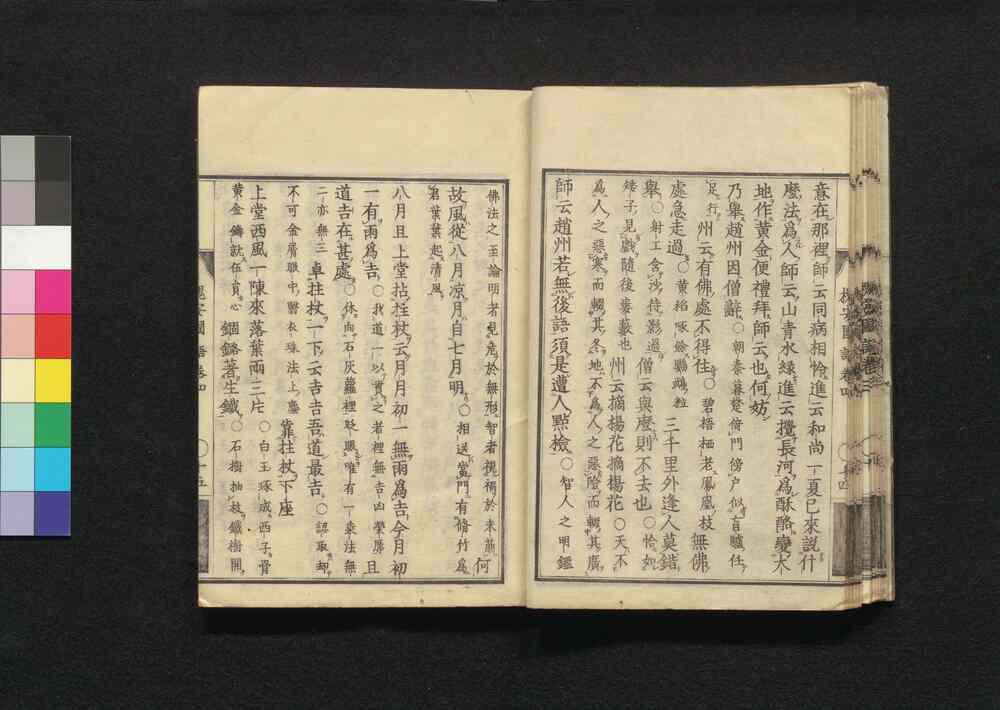 意在那裡師云同病相憐進云和尚一夏已來說什
麼法爲人師云山青水綠進云攪長河爲酥酪變大
地作黃金便禮拜師云也何妨
乃舉趙州因僧辭○朝秦暮楚倚門傍戶似盲驢任
足行州云有佛處不得住○碧梧栖老鳳凰枝無佛
處急走過○啄餘鸚鵡粒三千里外逢人莫錯
舉○射工含沙待影過僧云與麼則不去也○恰如
矮子見戲隨後婁藪也州云摘楊花摘楊花○天不
爲人之惡寒而輟其冬地不爲人之惡險而輟其廣
師云趙州若無後語須是遭人點檢○智人之甲鑑
佛法之至論明者見危於無形智者視禍於未萠何
故風從八月凉月自七月明○相送當門有脩竹爲
君葉葉起清風
八月旦上堂拈拄杖云月月初一無雨爲吉今月初
一有雨爲吉○我道一以貫之者裡無吉凶榮辱且
道吉在甚處○休向石灰籮裡眨眼唯有一乘法無
二亦無三卓拄杖一下云吉吉吾道最吉○認取却
不可金屑眼中翳衣珠法上塵靠拄杖下座
上堂西風一陳來落葉兩三片○白玉琢成西子骨
黃金鑄就伍員心錮鏴著生鐵○石樹抽枝鐵樹開